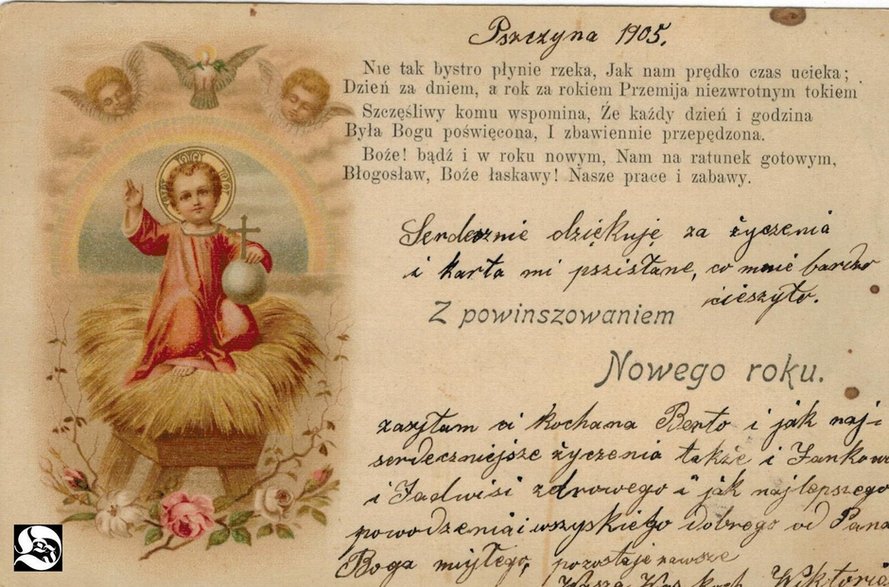 Pszczyna 1905.
Nie tak bystro płynie rzeka, Jak nam prędko czas ucieka;
Dzień za dniem, a rok za rokiem Przemija niezwrotnym tokiem
Szczęśliwy komu wspomina, Że każdy dzień i godzina
Była Bogu poświęcona, I zbawiennie przepędzona.
Boże! bądź i w roku nowym, Nam na ratunek gotowym,
Błogosław, Boże łaskawy! Nasze prace i zabawy.
Serdecznie dziękuję za życzenia
i karta mi pszisłane, co mnie bardzo
cieszyło.
Z powinszowaniem
Nowego roku.
zasyłam ci kochana Berto i jak naj-
serdeczniejsze życzenia także i Jankowi
i Jadwisi zdrowego i jak najlepszego
powodzenia i wszyskiego dobrego od Pana
Boga miyłego, pozostaje nawsze
Wasza Was koch. Wiktoria